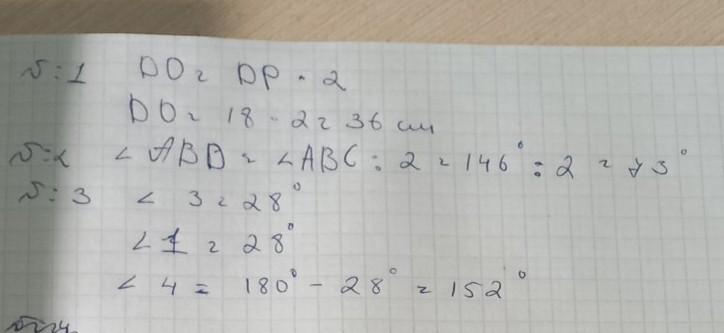 №:1 DO = DP · 2
DO = 18 · 2 = 36 см
№:2 ∠ABD = ∠ABC : 2 = 146° : 2 = 73°
№:3 ∠3 = 28°
∠1 = 28°
∠4 = 180° - 28° = 152°